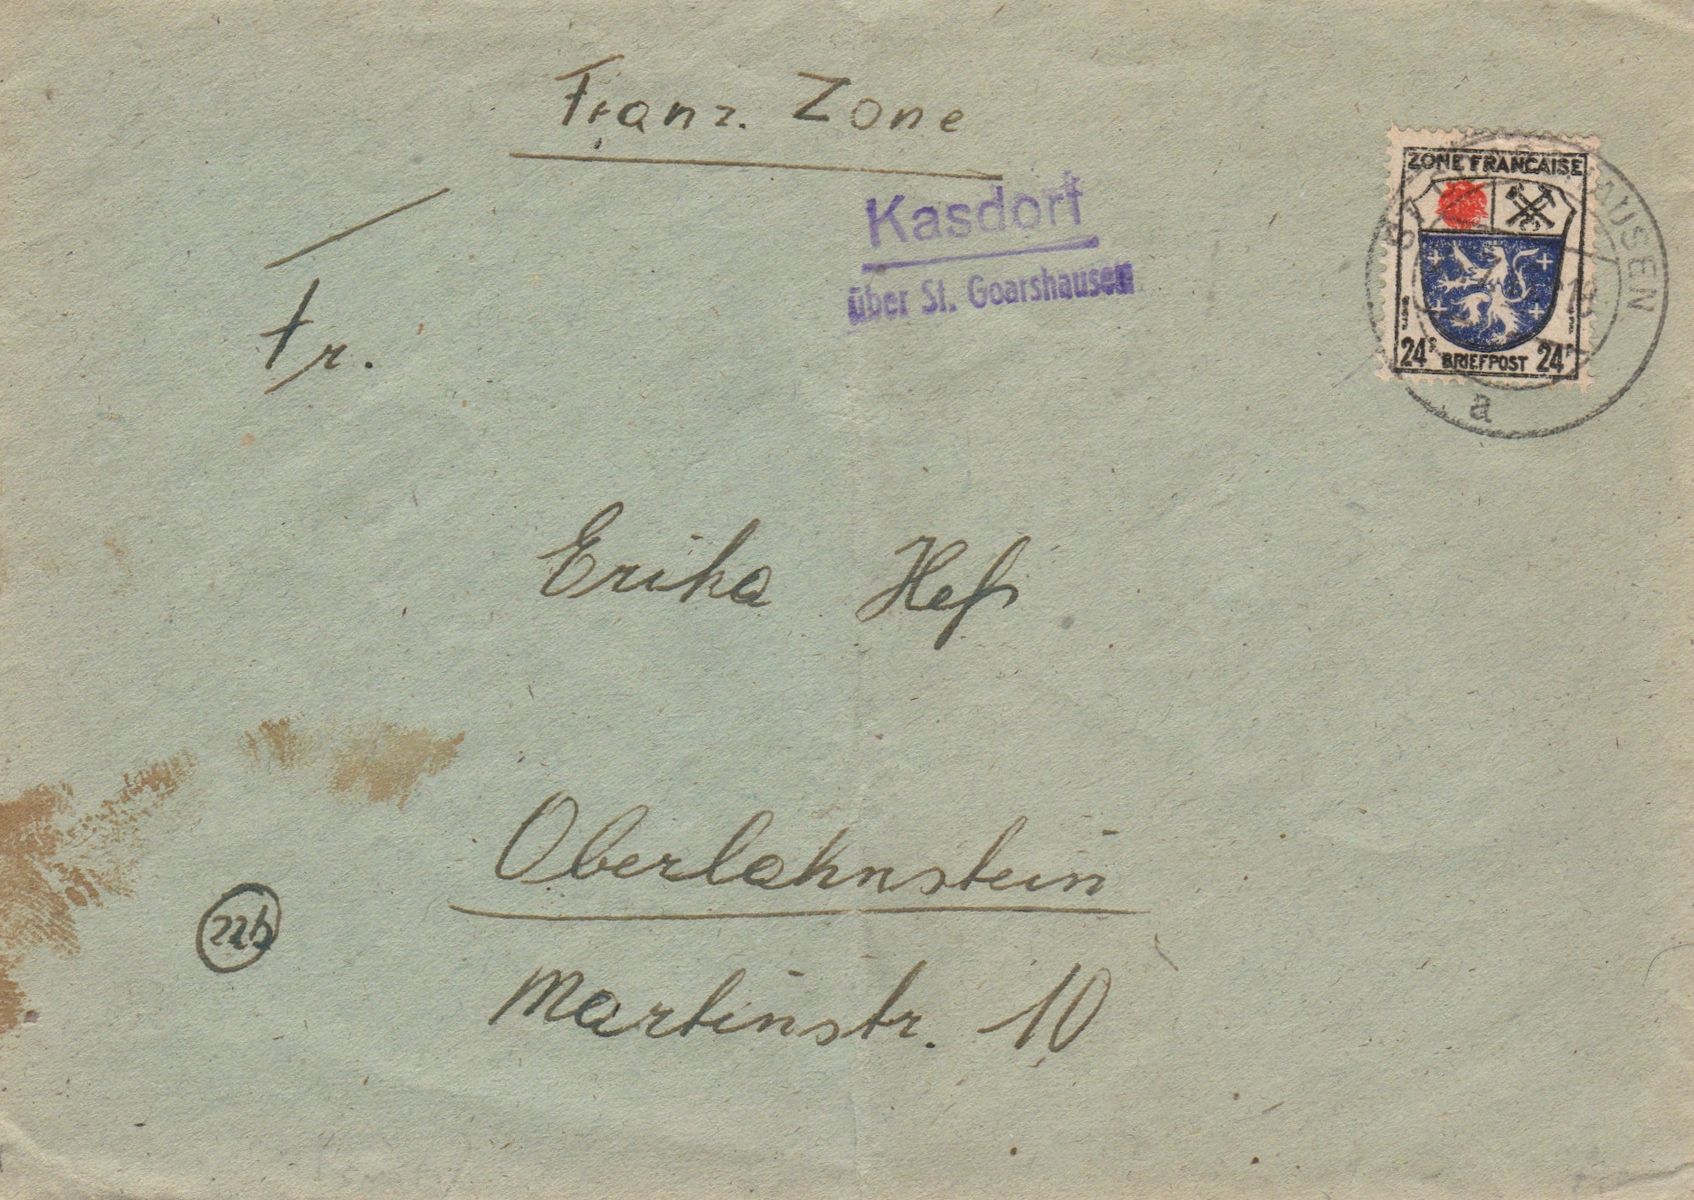 Franz. Zone
Kasdorf
über St. Goarshausen
ZONE FRANÇAISE
24 P BRIEFPOST 24 P
AUSEN
a
Fr.
Erika Heß
Oberlahnstein
22b
Martinstr. 10